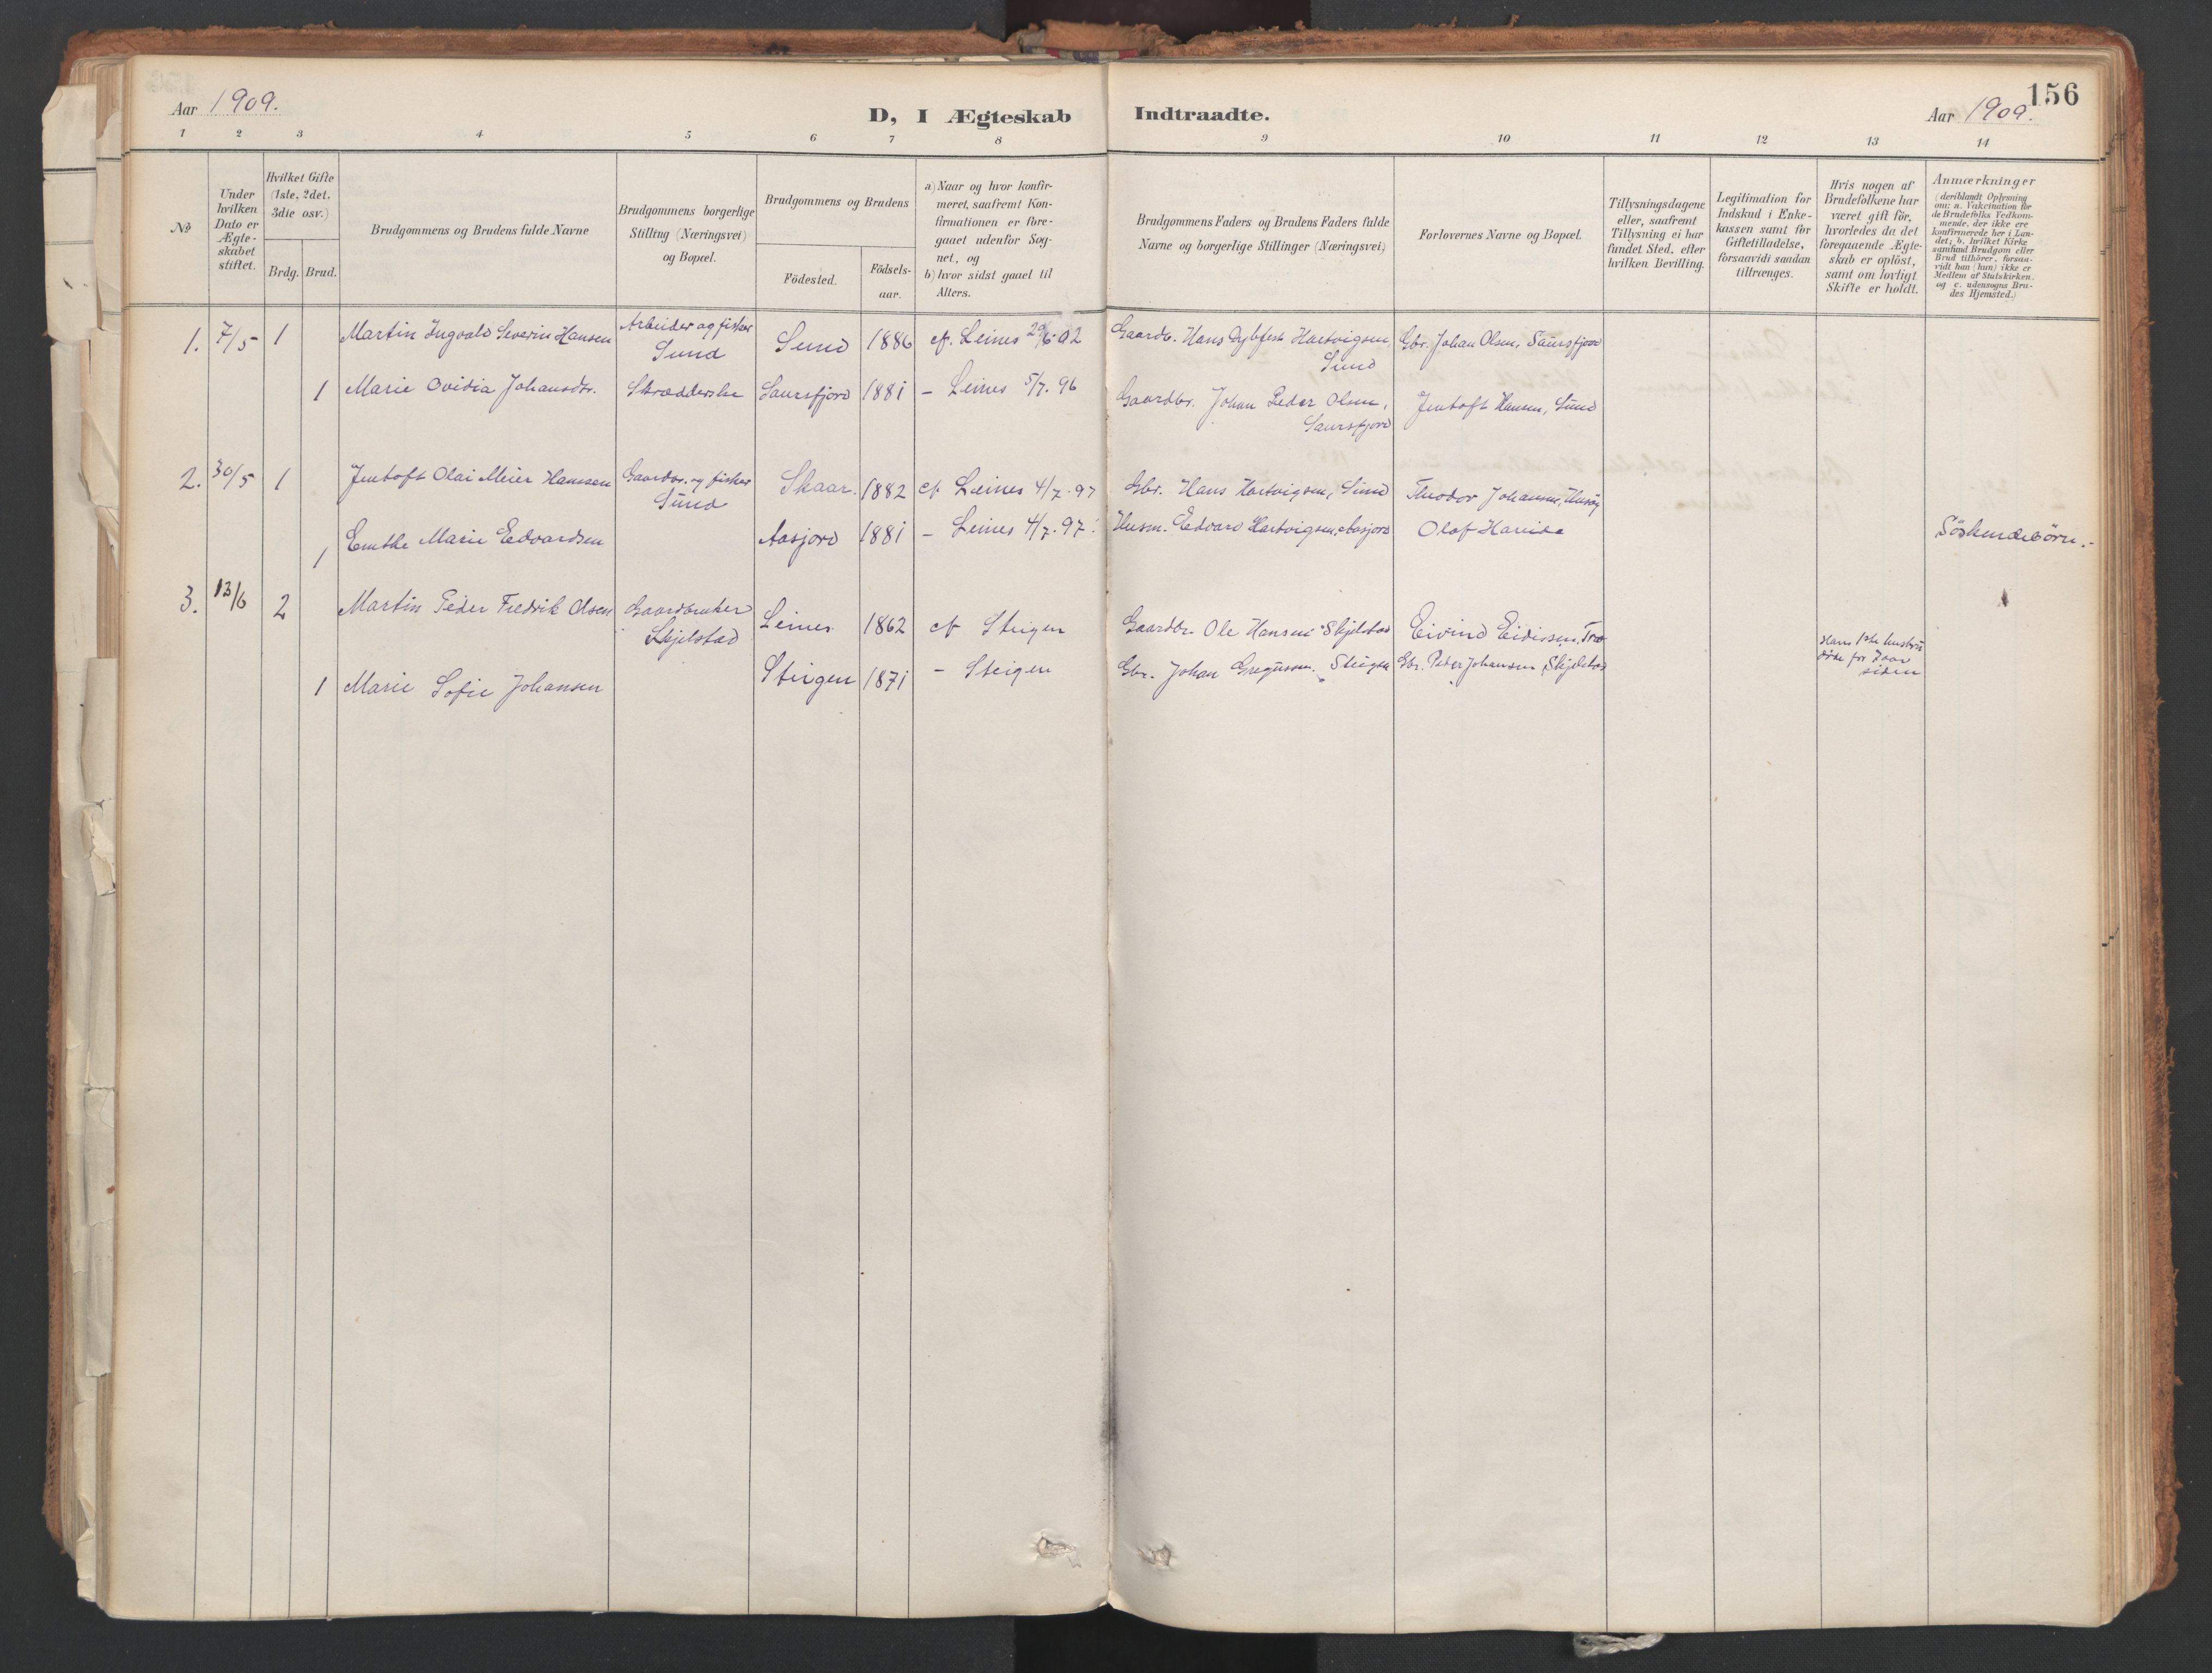 156
Aar 1909.
D, I Ægteskab Indtraadte.
Aar 1909.
1 2 3 4 5 6 7 8 9 10 11 12 13 14
№
Under hvilken Dato er Ægte-skabet stiftet.
Hvilket Gifte (1ste, 2det, 3die osv.)
Brdg. Brud.
Brudgommens og Brudens fulde Navne
Brudgommens borgerlige Stilling (Næringsvei) og Bopæl.
Brudgommens og Brudens
Födested.
Födsels-aar.
a) Naar og hvor konfir-
meret, saafremt Kon-
firmationen er fore-
gaaet udenfor Sog-
net, og
b) hvor sidst gaaet til
Alters.
Brudgommens Faders og Brudens Faders fulde
Navne og borgerlige Stillinger (Næringsvei)
Forlovernes Navne og Bopæl.
Tillysningsdagene
eller, saafremt
Tillysning ei har
fundet Sted, efter
hvilken Bevilling.
Legitimation for
Indskud i Enke-
kassen samt for
Giftetilladelse,
forsaavidt saadan
tiltrænges.
Hvis nogen af
Brudefolkene har
været gift før,
hvorledes da det
foregaaende Ægte-
skab er oplöst,
samt om lovligt
Skifte er holdt.
Anmærkninger
(deriblandt Oplysning
om: a. Vakcination for
de Brudefolks Vedkom-
mende, der ikke ere
konfirmerede her i Lan-
det; b. hvilket Kirke
samfund Brudgom eller
Brud tilhörer, forsaa-
vidt han (hun) ikke er
Medlem af Statskirken.
og c. udensogns Bru-
des Hjemsted.)
1. 7/5 1 Martin Ingvald Severin Hansen Arbeider og fisker Sund Sund 1886 cf. Leines 29/6-02 Gaardb. Hans Dybfest Hartvigsen, Sund Gbr. Johan Olsen, Saursfjord
1 Marie Ovidia Johansdr. Skrædderske Saursfjord 1881 – Leines 5/7. 96 Gaardbr. Johan Peder Olsen, Saursfjord Jentoft Hansen, Sund
2. 30/5 1 Jentoft Olai Meier Hansen Gaardbr. og fisker Sund Skaar. 1882 cf Leines 4/7. 97 Gbr. Hans Hartvigsen, Sund Theodor Johansen, Husöy
1 Emthe Marie Edvardsen Aasjord 1881 – Leines 4/7. 97. Husm. Edvard Hartvigsen, Aasjord Olaf Söskendebörn.-
3. 13/6 2 Martin Peder Fredrik Olsen Gaardbruker Skjelstad Leines 1862 cf Steigen Gaardbr. Ole Hansen Skjelstad Eivind Eidissen,
Hans 1ste hustru
döde for 2 aar
siden
1 Marie Sofie Johansen Steigen 1871 – Steigen Gbr. Johan Gregusson. Steigen Gbr. Peder Johansen Skjelstad